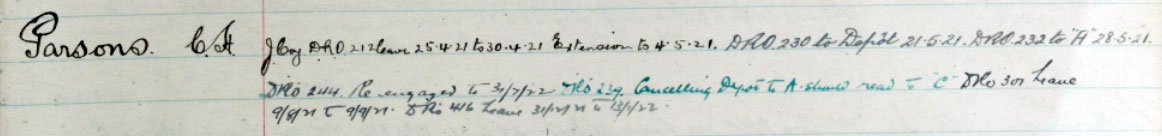 Parsons. C A J Coy. DRO. 212 leave 25.4.21 to 30.4.21 Extension to 4.5.21. DRO. 230 to Depôt 21.5.21. DRO. 232 to "A" 28.5.21.
DRO 244. Re-engaged to 31/7/22 DRO 239. Cancelling Depot to A. should read to "C" DRo 301 Leave
9/8/21 to 9/9/21. DRo 416 Leave 31/12/21 to 13/1/22.